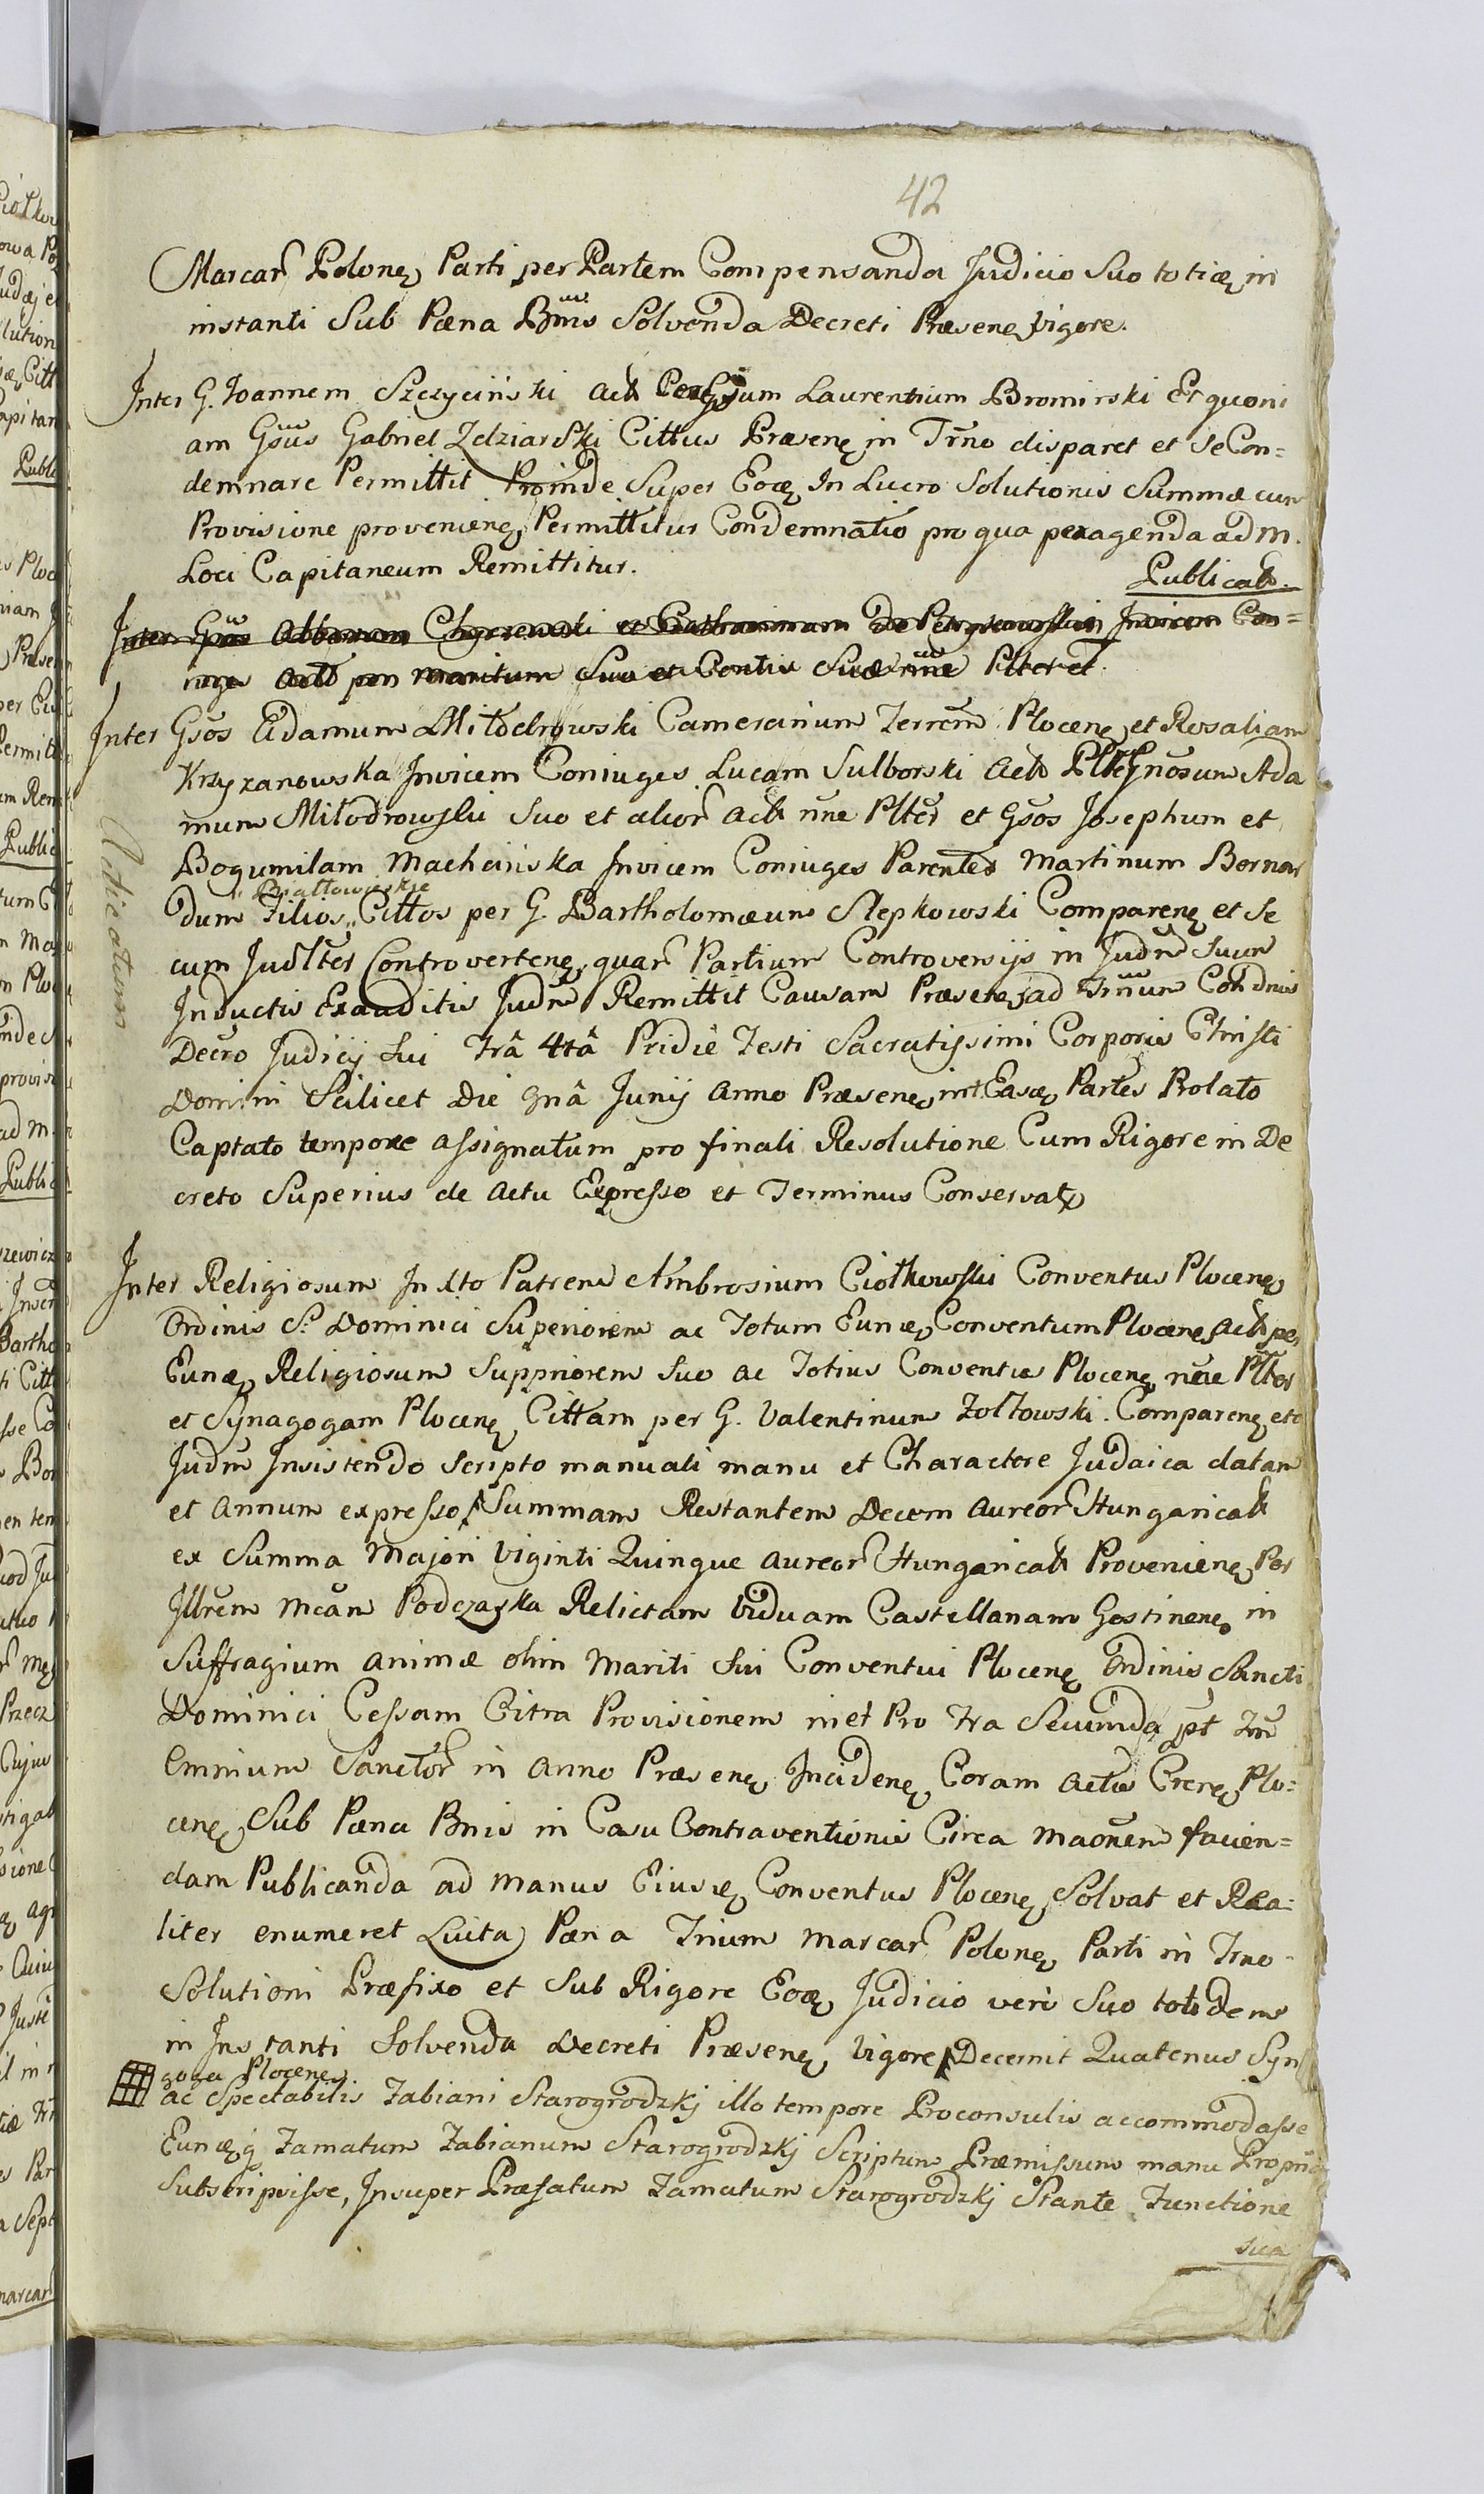 42
Marcar Polone Parti per Partem Compensanda Judicio Suo totiæ in
instanti Sub Pæna Bnis Solvenda Decreti Præsene vigore.
Inter G. Joannem Szczyciński Act Laurentium Bromirski Et quoni
am Gsus Gabriel Zdziarski Cittus Præsene in Trno disparet et Se Con=
demnare Permittit Proinde Super Eoæ In Lucro Solutionis Summæ cum
Provisione proveniene Permittitur Condemnatio pro qua peragenda ad m.
Loci Capitaneum Remittitur.
Publicat.
Inter et Invicem Con=
maritum Suo et Contis Suæ nne Plter et
Inter Gsos Adamum Miłodrowski Camerarium Terrem Plocene et Rosaliam
Krzyzanowska Invicem Coniuges Lucam Sulborski Act Ada
mum Miłodrowski Suo et alior Act nne Plter et Gsos Josephum et
Bogumilam Machcińska Invicem Coniuges Parentes Martinum Bernar
dum Filios Cittos per G. Bartholomæum Slepkowski Comparene et Se
cum Judlter Controvertene, quar Partium Controversijs in Judm Suum
Inductis Exauditis Judm Remittit Causam Præsene ad Trnum
Decro Judicij Sui Fra 4ta Pridie Festi Sacratissimi Corporis Christi
Domini Scilicet Die 9nâ Junij Anno Præsene int Easæ Partes Prolato
Captato tempore assignatum pro finali Resolutione Cum Rigore in De
creto Superius de Actu Expresso et Terminus Conservat
Inter Religiosum In Xto Patrem Ambrosium Ciołkowski Conventus Plocene
Ordinis S. Dominici Superiorem ac Totum Eunæ Conventum Plocene Act per
Eunæ Religiosum Suppriorem Suo ac Totius Conventus Plocene nne Plter
et Synagogam Plocene Cittam per G. Valentinum Zołtowski. Comparene etc
Judm Insistendo Scripto manuali manu et Charactere Judaica datam
et Annum expresso Summam Restantem Decem Aureor Hungarical
ex Summa Majori Viginti Quinque Aureor Hungarical Proveniene Per
Illrem Mcam Podczaska Relictam Viduam Castellanam Gostinene in
Suffragium Animæ olim Mariti Sui Conventui Plocene Ordinis Sancti
Dominici Cessam Citra Provisionem Pro Fra Secunda pt Fm
Omnium Sanctor in Anno Præsene Incidene Coram Actis Plo=
cene Sub Pæna Bnis in Casu Contraventionis Circa maonem facien=
dam Publicanda ad Manus Eiusæ Conventus Plocene Solvat et Rea=
liter enumeret Luita Pæna Trium Marcar Polone Parti in Trno
Solutioni Præfixo et Sub Rigore Eoæ Judicio vero Suo totidem
in Instanti Solvenda Decreti Præsene Vigore Decernit Quatenus Syn
goga Plocene
ac Spectabilis Fabiani Starogrodzkj illo tempore Proconsulis accommodasse
Eunæq Famatum Fabianum Starogrodzkj Scriptum Præmissum manu Propria
Subscripsisse, Insuper Præfatum Famatum Starogrodzkj Stante Functione
sua